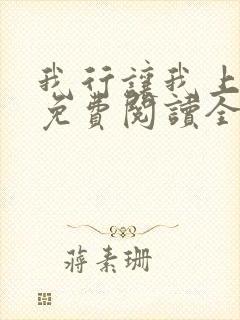 我行讓我上
免費閱讀全
蔣素珊